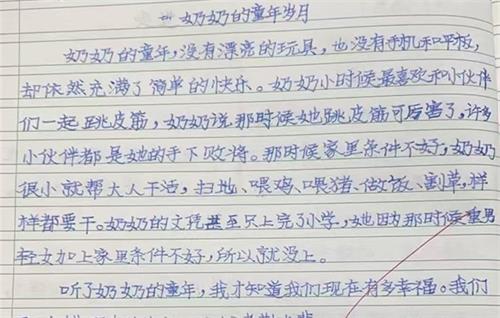 奶奶的童年岁月
奶奶的童年,没有漂亮的玩具,也没有手机和平板,
却依然充满了简单的快乐。奶奶小时候最喜欢和小伙伴
们一起跳皮筋,奶奶说那时候她跳皮筋可厉害了,许多
小伙伴都是她的手下败将。那时候家里条件不好,奶奶
很小就帮大人干活,扫地、喂鸡、喂猪、做饭、割草,样
样都要干。奶奶的文凭甚至只上完了小学,她因为那时候重男
轻女加上家里条件不好,所以就没上。
听了奶奶的童年,我才知道我们现在有多幸福。我们